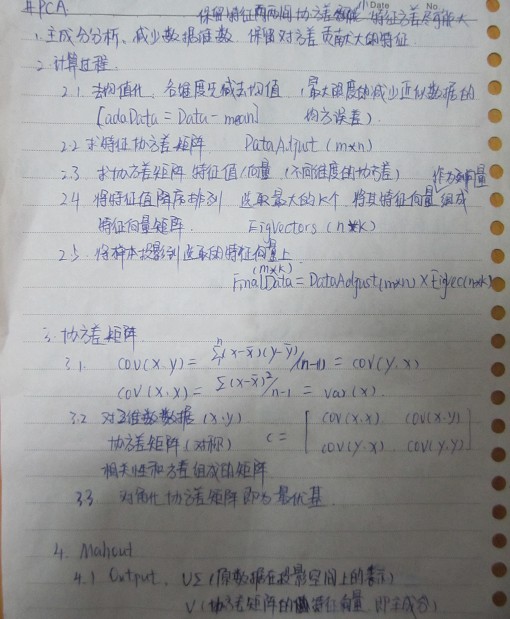 #PCA 保留特征两两间协方差 特征方差尽可能大
Date No.
1. 主成分分析、减少数据维数 保留对方差贡献大的特征
2. 计算过程
2.1 去均值化 各维度先减去均值 (最大限度的减少近似数据的
[adaData = Data - mean] 均方误差)
2.2 求特征协方差矩阵 DataAdjust (m×n)
2.3. 求协方差矩阵特征值/向量 (不同维度的协方差)
作为列向量
2.4 将特征值降序排列 选取最大的K个 将其特征向量组成
特征向量矩阵. EigVectors (n*k)
2.5. 将样本投影到选取的特征向量上
(m×k)
FinalData = DataAdjust(m×n) × Eigvec(n×k)
3. 协方差矩阵
3.1. cov(x.y) = Σ(x-x̄)(y-ȳ)/(n-1) = cov(y,x)
cov(x,x) = Σ(x-x̄)²/n-1 = var(x).
3.2 对二维数据 (x.y)
协方差矩阵 (对称) C = [ cov(x.x) cov(x.y)
cov(y.x) cov(y.y) ]
相关性和方差组成的矩阵
3.3 对角化协方差矩阵即为最优基
4. Mahout
4.1 Output. UΣ (原数据在投影空间上的表示)
V (协方差矩阵的特征向量 即主成分)